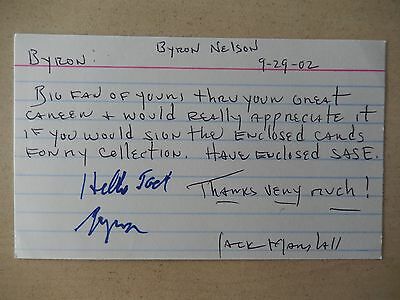 Byron Nelson
Byron: 9-29-02
Big fan of yours thru your great
career & would really appreciate it
if you would sign the enclosed cards
for my collection. Have enclosed SASE.
Hello Jack Thanks very much!
Byron
Jack Marshall